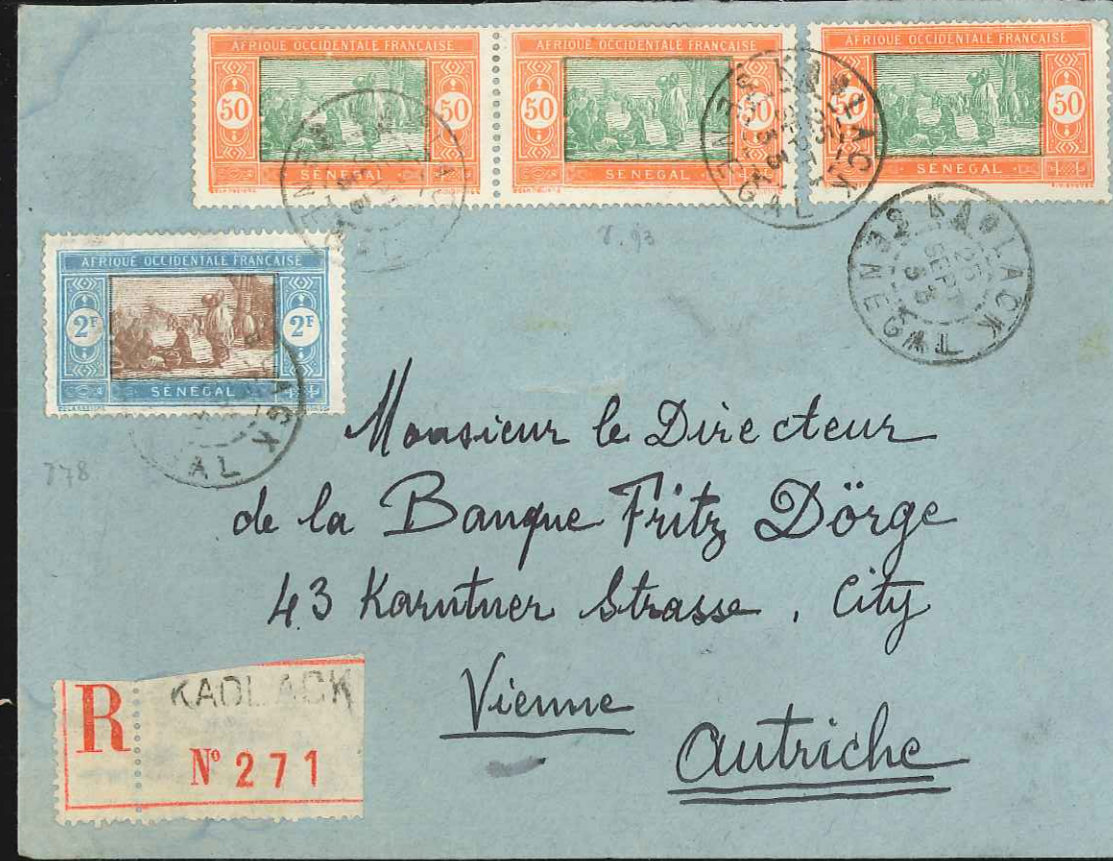 AFRIQUE OCCIDENTALE FRANÇAISE
50 50
SÉNÉGAL
AFRIQUE OCCIDENTALE FRANÇAISE
50 50
SÉNÉGAL
AFRIQUE OCCIDENTALE FRANÇAISE
50 50
SÉNÉGAL
KAOLACK
SENEGAL
7.93
KAOLACK
25
SEPT
33
SENEGAL
AFRIQUE OCCIDENTALE FRANÇAISE
2F 2F
SÉNÉGAL
778
Monsieur le Directeur
de la Banque Fritz Dörge
43 Karntner Strasse, City
Vienne
Autriche
R KAOLACK
Nº 271